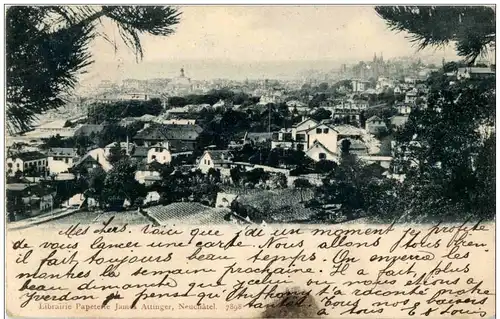 Mes chers. Voici que j'ai un moment j'en profite
de vous lancer une carte. Nous allons tous bien
il fait toujours beau temps. On enverra les
manches la semaine prochaine. Il a fait plus
beau dimanche passé car nous étions à
Yverdon je pense qu'Anthony t'a raconté
Tous nos baisers
à tous. E. et Louis
Librairie Papeterie James Attinger, Neuchâtel. 7898